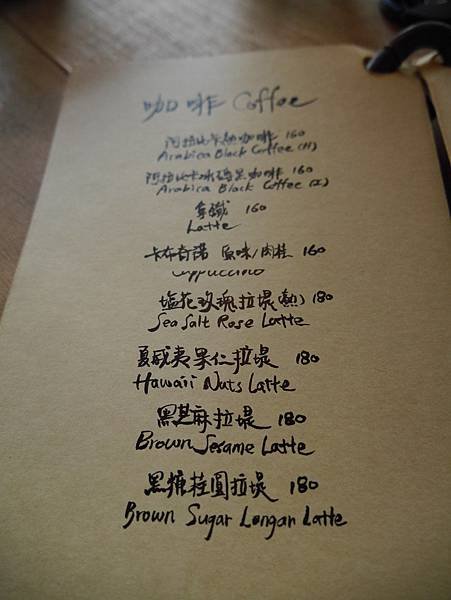 咖啡 Coffee
阿拉比卡熱咖啡 160
Arabica Black Coffee (H)
阿拉比卡冰磚黑咖啡 160
Arabica Black Coffee (I)
拿鐵 160
Latte
卡布奇諾 原味/肉桂 160
Cappuccino
塩花玫瑰拉堤(熱) 180
Sea Salt Rose Latte
夏威夷果仁拉堤 180
Hawaii Nuts Latte
黑芝麻拉堤 180
Brown Sesame Latte
黑糖桂圓拉堤 180
Brown Sugar Longan Latte